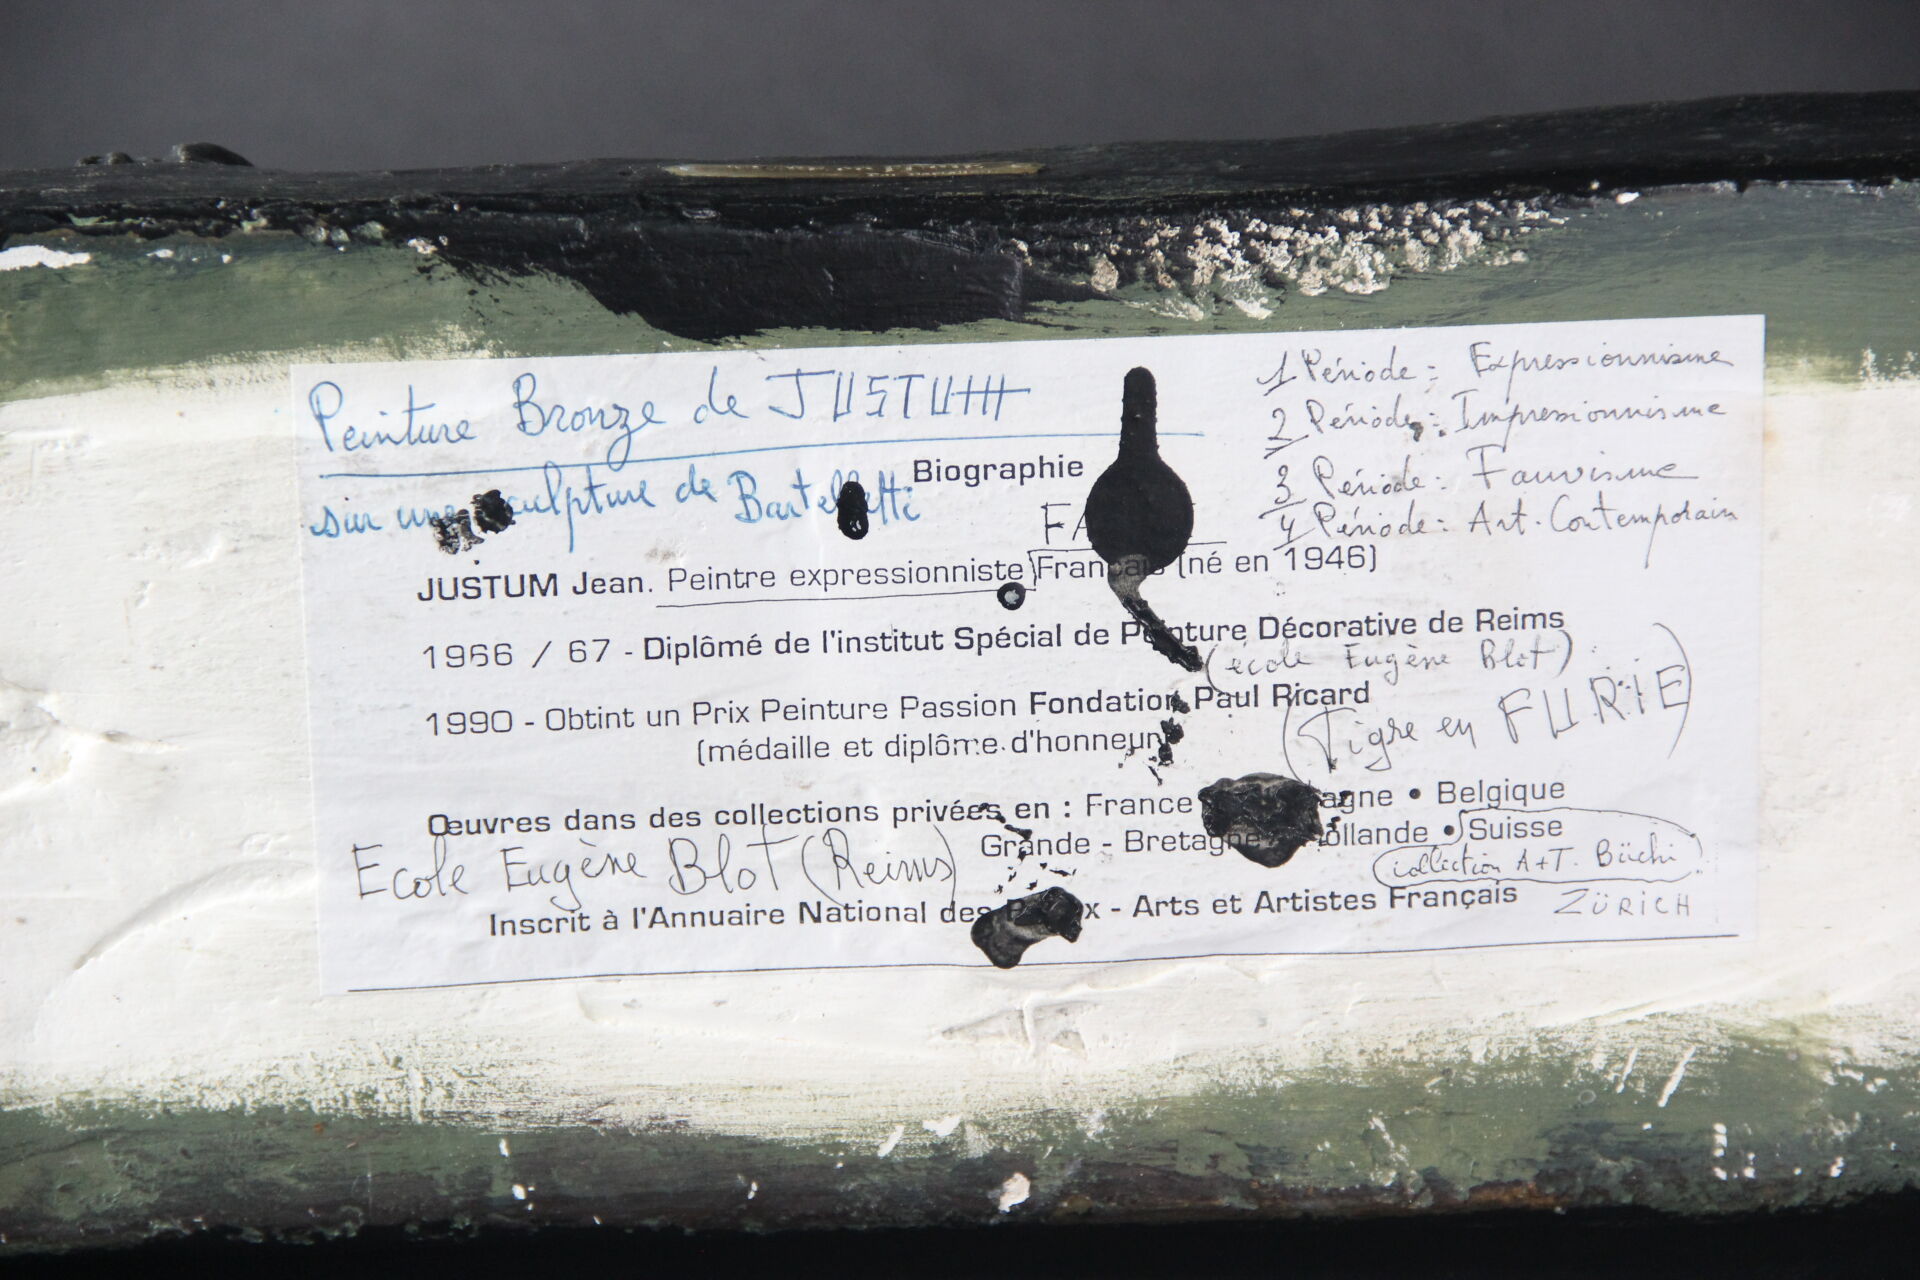 Peinture Bronze de JUSTUM
sur une sculpture de Bartelletti
1 Période: Expressionnisme
2 Période: Impressionnisme
3 Période: Fauvisme
4 Période: Art. Contemporain
Biographie
JUSTUM Jean. Peintre expressionniste Français (né en 1946)
1966 / 67 - Diplômé de l'institut Spécial de Peinture Décorative de Reims
(école Eugène Blot)
1990 - Obtint un Prix Peinture Passion Fondation Paul Ricard
(médaille et diplôme d'honneur)
(Tigre en FURIE)
Œuvres dans des collections privées en : France agne • Belgique
Grande - Bretagne Hollande • Suisse
(collection A+T. Büchi)
ZÜRICH
Ecole Eugène Blot (Reims)
Inscrit à l'Annuaire National des x - Arts et Artistes Français